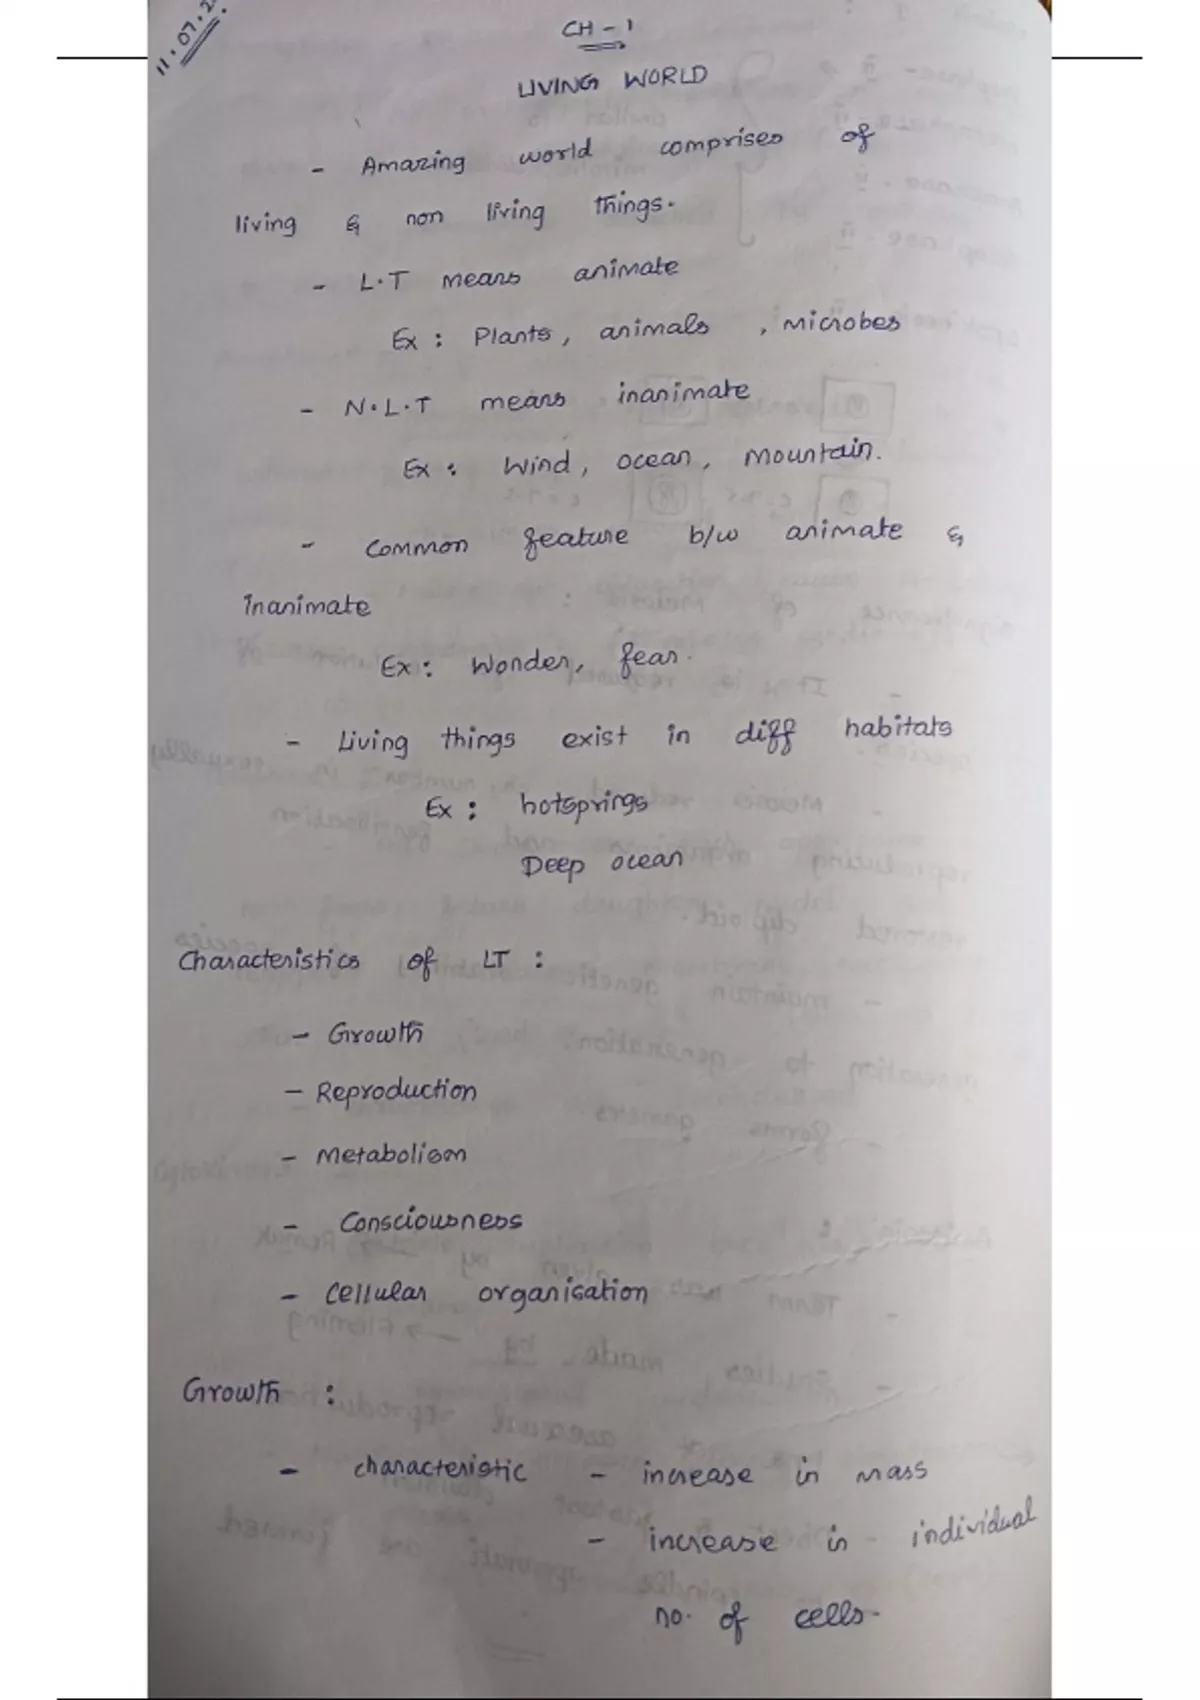 11.07.2
CH - 1
LIVING WORLD
- Amazing world comprises of
living & non living things.
- L.T means animate
Ex : Plants, animals, microbes
- N.L.T means inanimate
Ex : Wind, ocean, mountain.
- Common feature b/w animate &
inanimate
Ex : Wonder, fear.
- Living things exist in diff habitats
Ex : hotsprings
Deep ocean
Characteristics of LT :
- Growth
- Reproduction
- Metabolism
- Consciousness
- Cellular organisation
Growth :
- characteristic - increase in mass
- increase in individual
no. of cells.